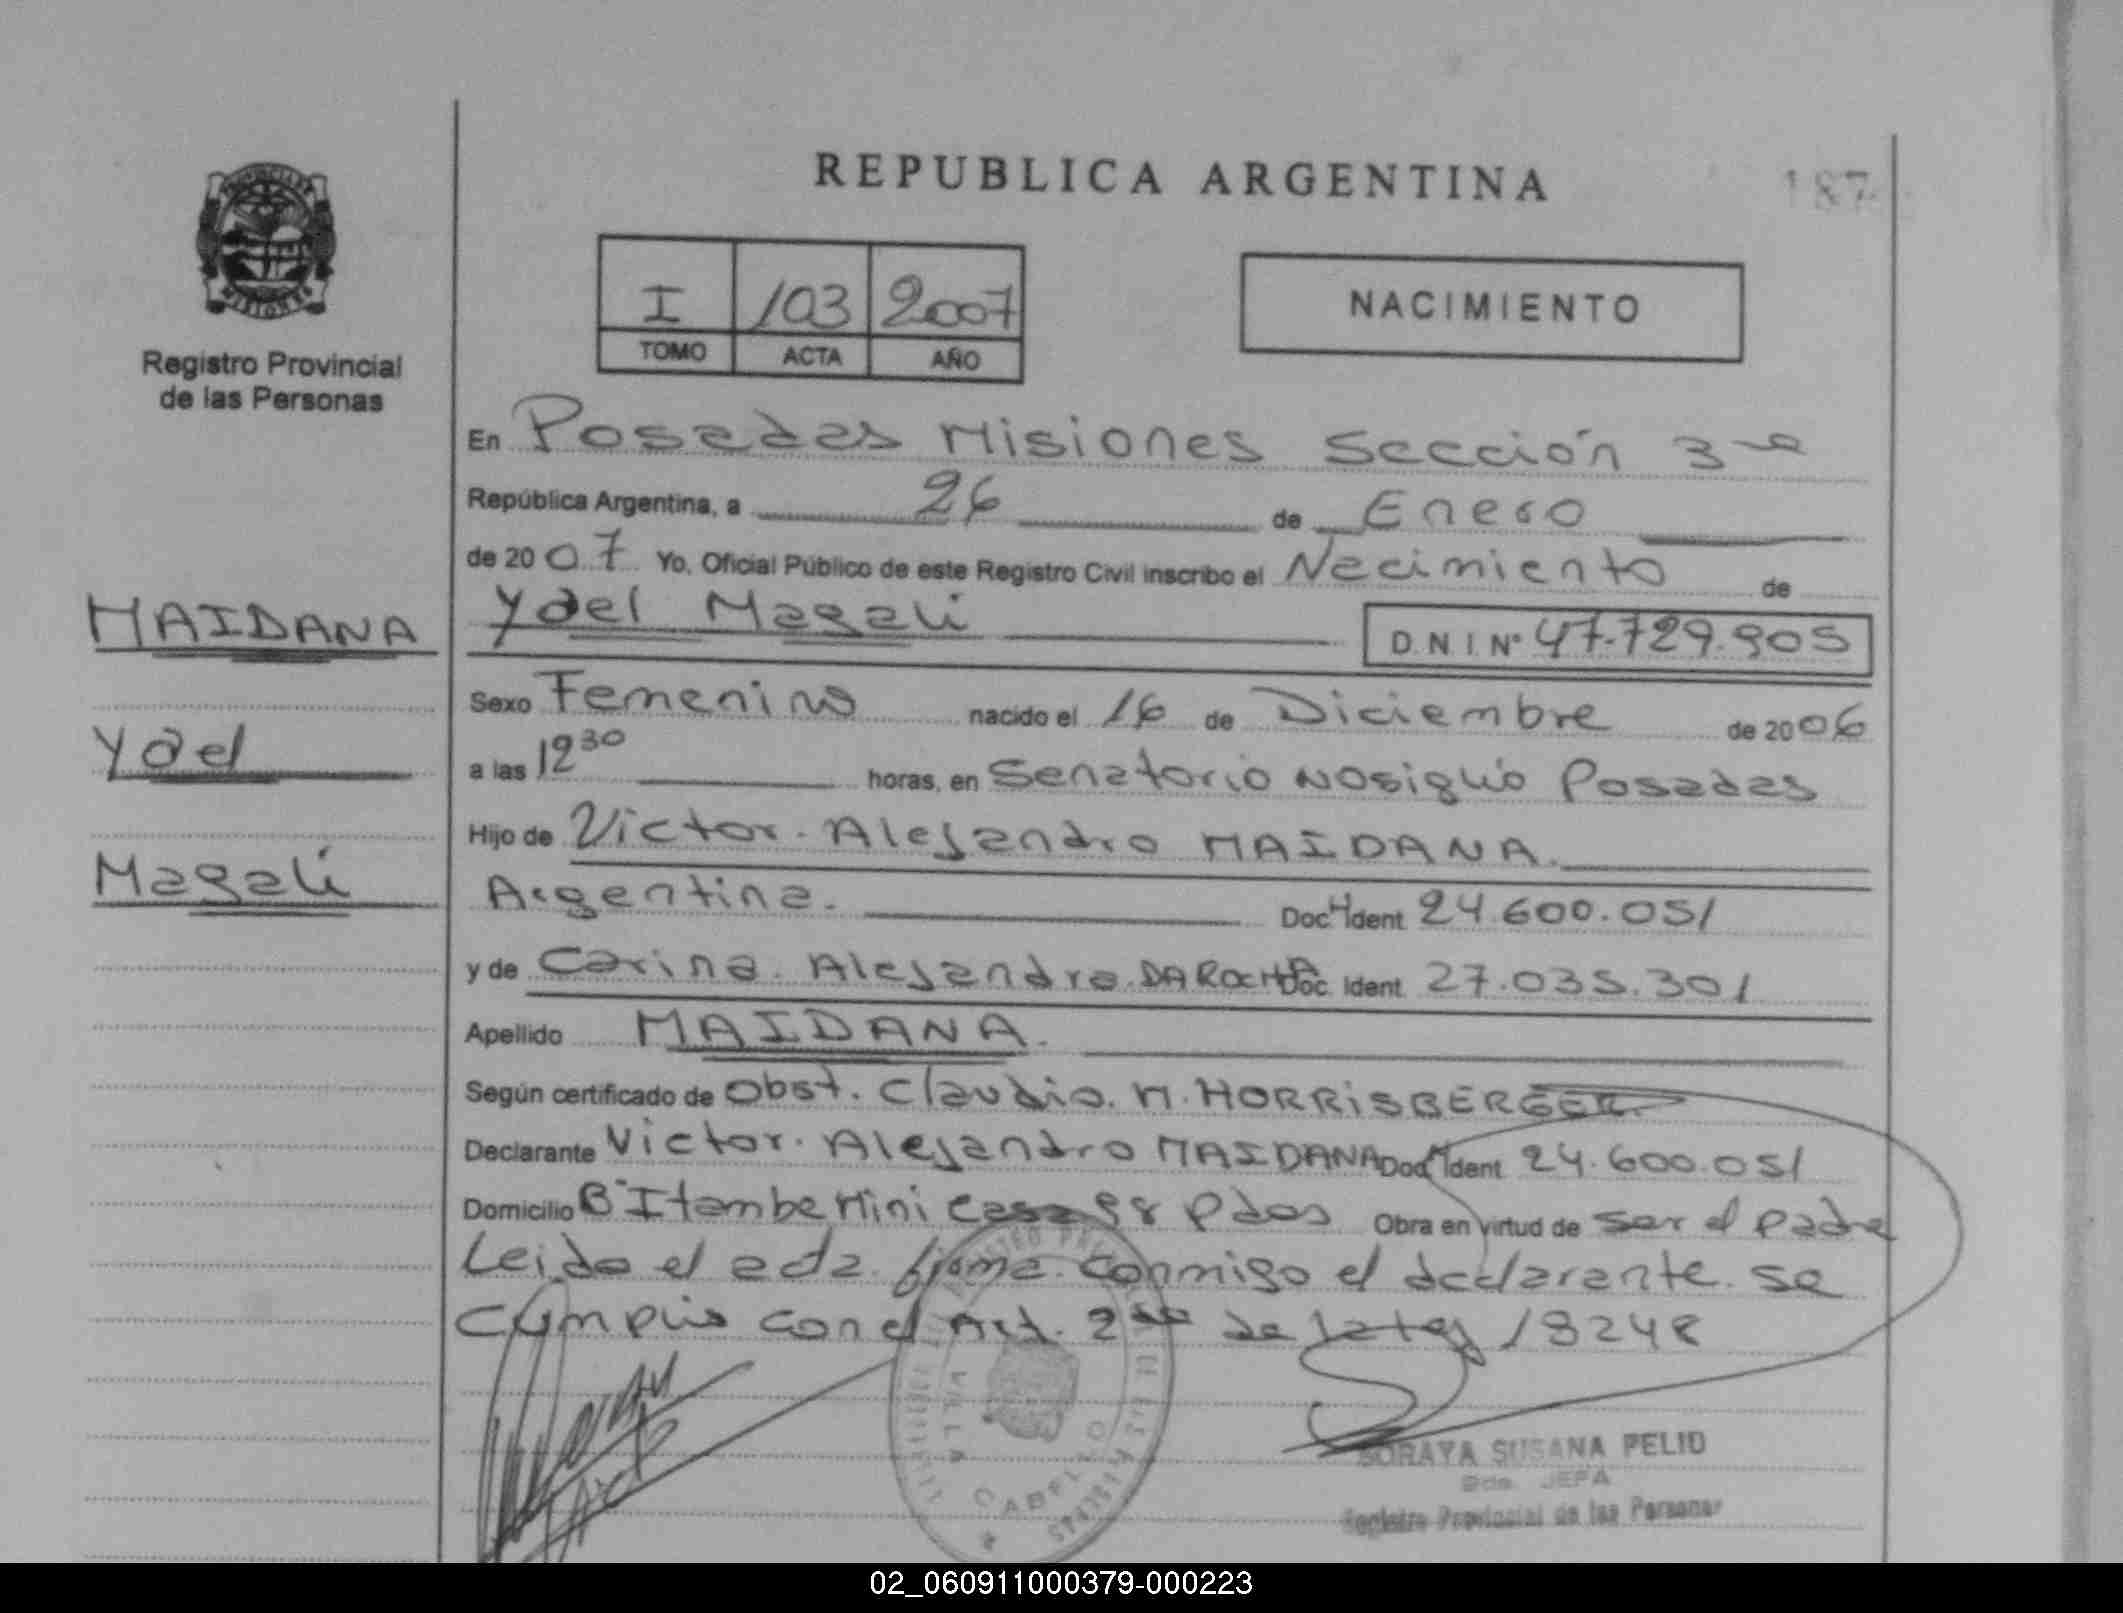 REPUBLICA ARGENTINA
187
PROVINCIA DE
MISIONES
Registro Provincial
de las Personas
I 103 2007
TOMO ACTA AÑO
NACIMIENTO
En Posadas Misiones Sección 3ra
República Argentina, a 26 de Enero
de 2007 Yo, Oficial Público de este Registro Civil inscribo el Nacimiento de
Yael Magali D.N.I. Nº 47.729.905
MAIDANA
Yael
Magali
Sexo Femenino nacido el 16 de Diciembre de 2006
a las 12 30 horas, en Sanatorio Nosiglio Posadas
Hijo de Victor Alejandro MAIDANA
Argentina. Doc. Ident. 24.600.051
y de Carina Alejandra DA ROCHA Doc. Ident. 27.035.301
Apellido MAIDANA.
Según certificado de Obst. Claudio M. HORRISBERGER
Declarante Victor Alejandro MAIDANA Doc. Ident. 24.600.051
Domicilio Bº Itambe Mini Casa 98 Pdas Obra en virtud de ser el padre
Leida el acta firma conmigo el declarante se
cumplio con el Art. 2do de la ley 18248
VILLA CABELLO
SORAYA SUSANA PELID
JEFA
Registro Provincial de las Personas
02_060911000379-000223